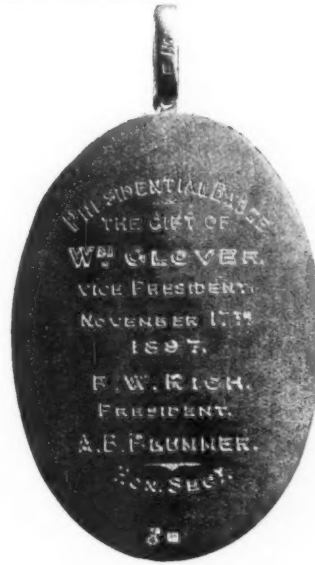 PRESIDENTIAL BADGE
THE GIFT OF
WM GLOVER.
VICE PRESIDENT.
NOVEMBER 17TH
1897.
F.W. RICH.
PRESIDENT.
A.B. PLUMMER.
HON. SECY.